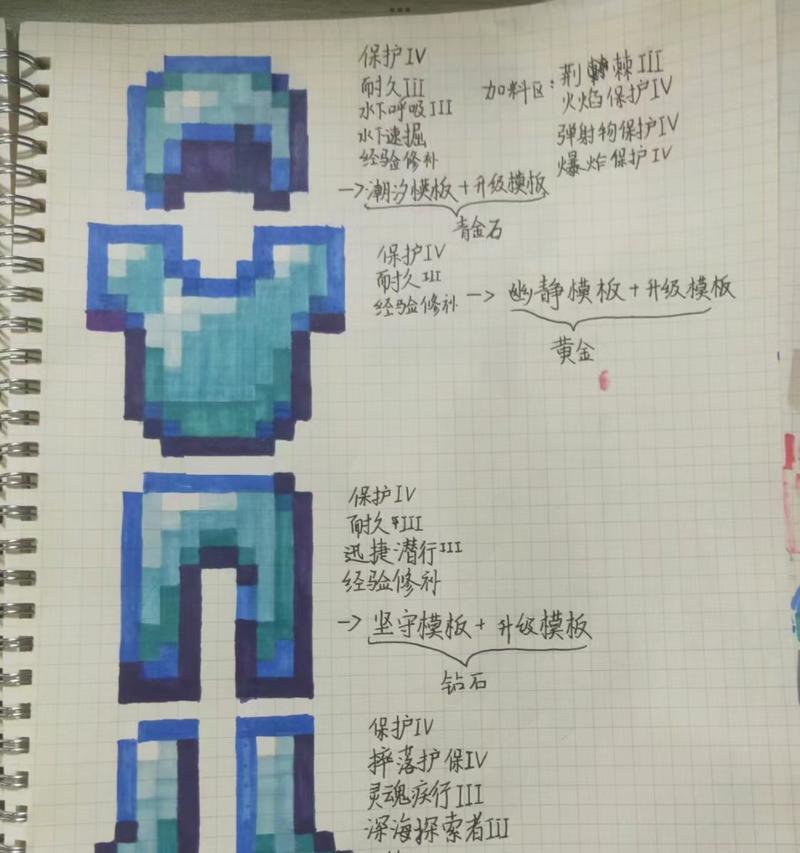 保护IV
耐久III
水下呼吸III
水下速掘
经验修补
加料区：荆棘III
火焰保护IV
弹射物保护IV
爆炸保护IV
→潮汐模板+升级模板
青金石
保护IV
耐久III
经验修补
→幽静模板+升级模板
黄金
保护IV
耐久III
迅捷潜行III
经验修补
→坚守模板+升级模板
钻石
保护IV
摔落护保IV
灵魂疾行III
深海探索者III